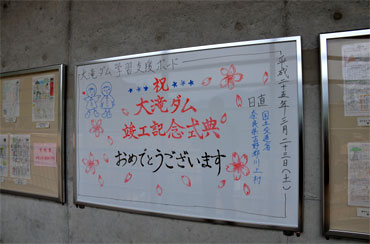 大滝ダム学習支援ボード
祝
大滝ダム
竣工記念式典
おめでとうございます
平成二十五年三月二十三日(土)
日直
国土交通省
奈良県吉野郡川上村